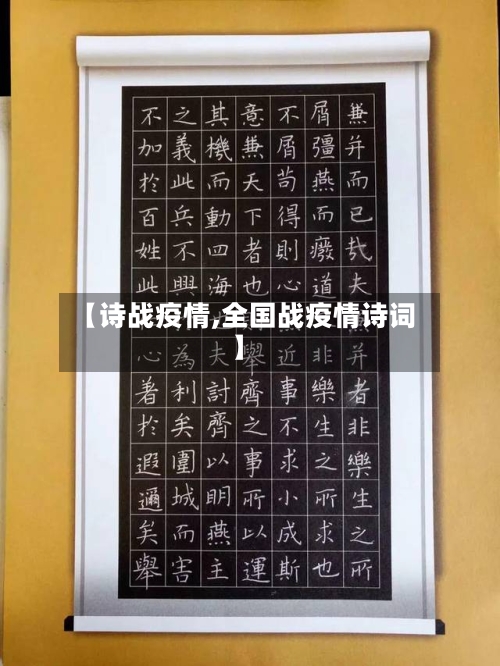 兼并而已哉夫并者非樂生之所
屑彊燕而癈道非樂生之所求也
不屑苟得則心近事不求小成斯
意兼天下者也舉齊之事所以運
其機而動四海夫討齊以明燕主
之義此兵不興為利矣圍城而害
不加於百姓此心著於遐邇矣舉
【诗战疫情,全国战疫情诗词
】